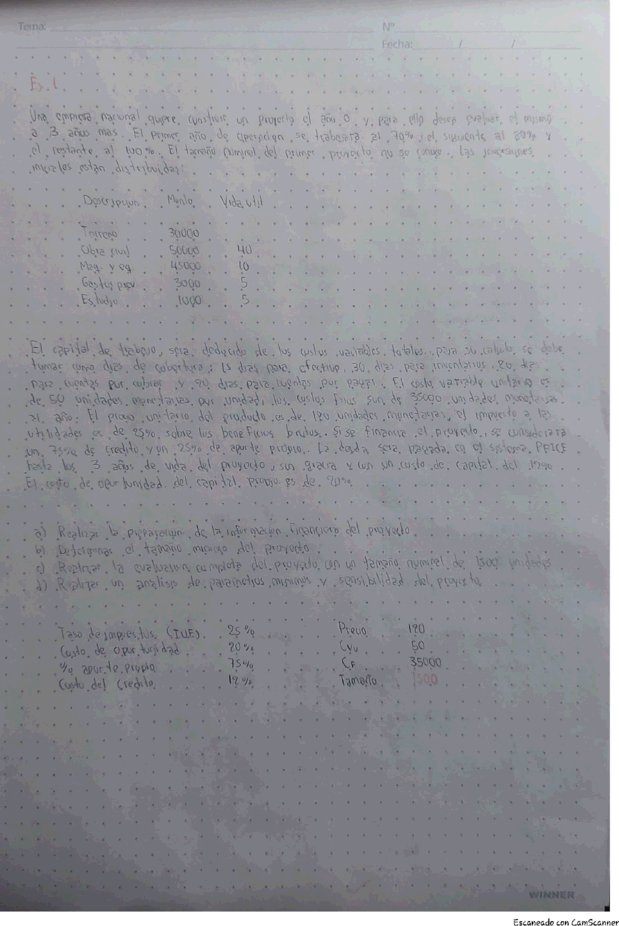 Tema:
Nº
Fecha: / /
Ej. 1.
Una empresa nacional quiere construir un proyecto el año 0 y para ello desea evaluar el mismo
a 3 años mas. El primer año de operacion se trabajara al 70% el siguiente al 80% y
el restante al 100%. El tamaño nominal del primer proyecto no se conoce. Las inversiones
iniciales estan distribuidas:
Descripcion Monto Vida util
Terreno 30000
Obra civil 50000 40
Maq. y eq. 45000 10
Gastos prev 3000 5
Estudio 1000 5
El capital de trabajo, sera deducido de los costos variables totales, para su calculo se debe
tomar como dias de cobertura: 15 dias para efectivo, 30 dias para inventarios,
para cuentas por cobrar y 90 dias para cuentas por pagar. El costo variable unitario es
de 50 unidades monetarias por unidad, los costos fijos son de 35000 unidades monetarias
al año. El precio unitario del producto es de 120 unidades monetarias, el impuesto a las
utilidades es de 25% sobre los beneficios brutos. Si se financia el proyecto, se considerara
un 75% de credito y un 25% de aporte propio. La deuda sera pagada en el sistema PRICE
hasta los 3 años de vida del proyecto, sin gracia y con un costo de capital del
El costo de oportunidad del capital propio es de 20%.
a) Realizar la preparacion de la informacion financiera del proyecto.
b) Determinar el tamaño minimo del proyecto.
c) Realizar la evaluacion completa del proyecto con un tamaño nominal de 1500 unidades
d) Realizar un analisis de parametros minimos y sensibilidad del proyecto.
Tasa de impuestos (IUE) 25% Precio 120
Costo de oportunidad 20% Cvu 50
% aporte propio 75% CF 35000
Costo del credito 12% Tamaño 1500
WINNER
Escaneado con CamScanner